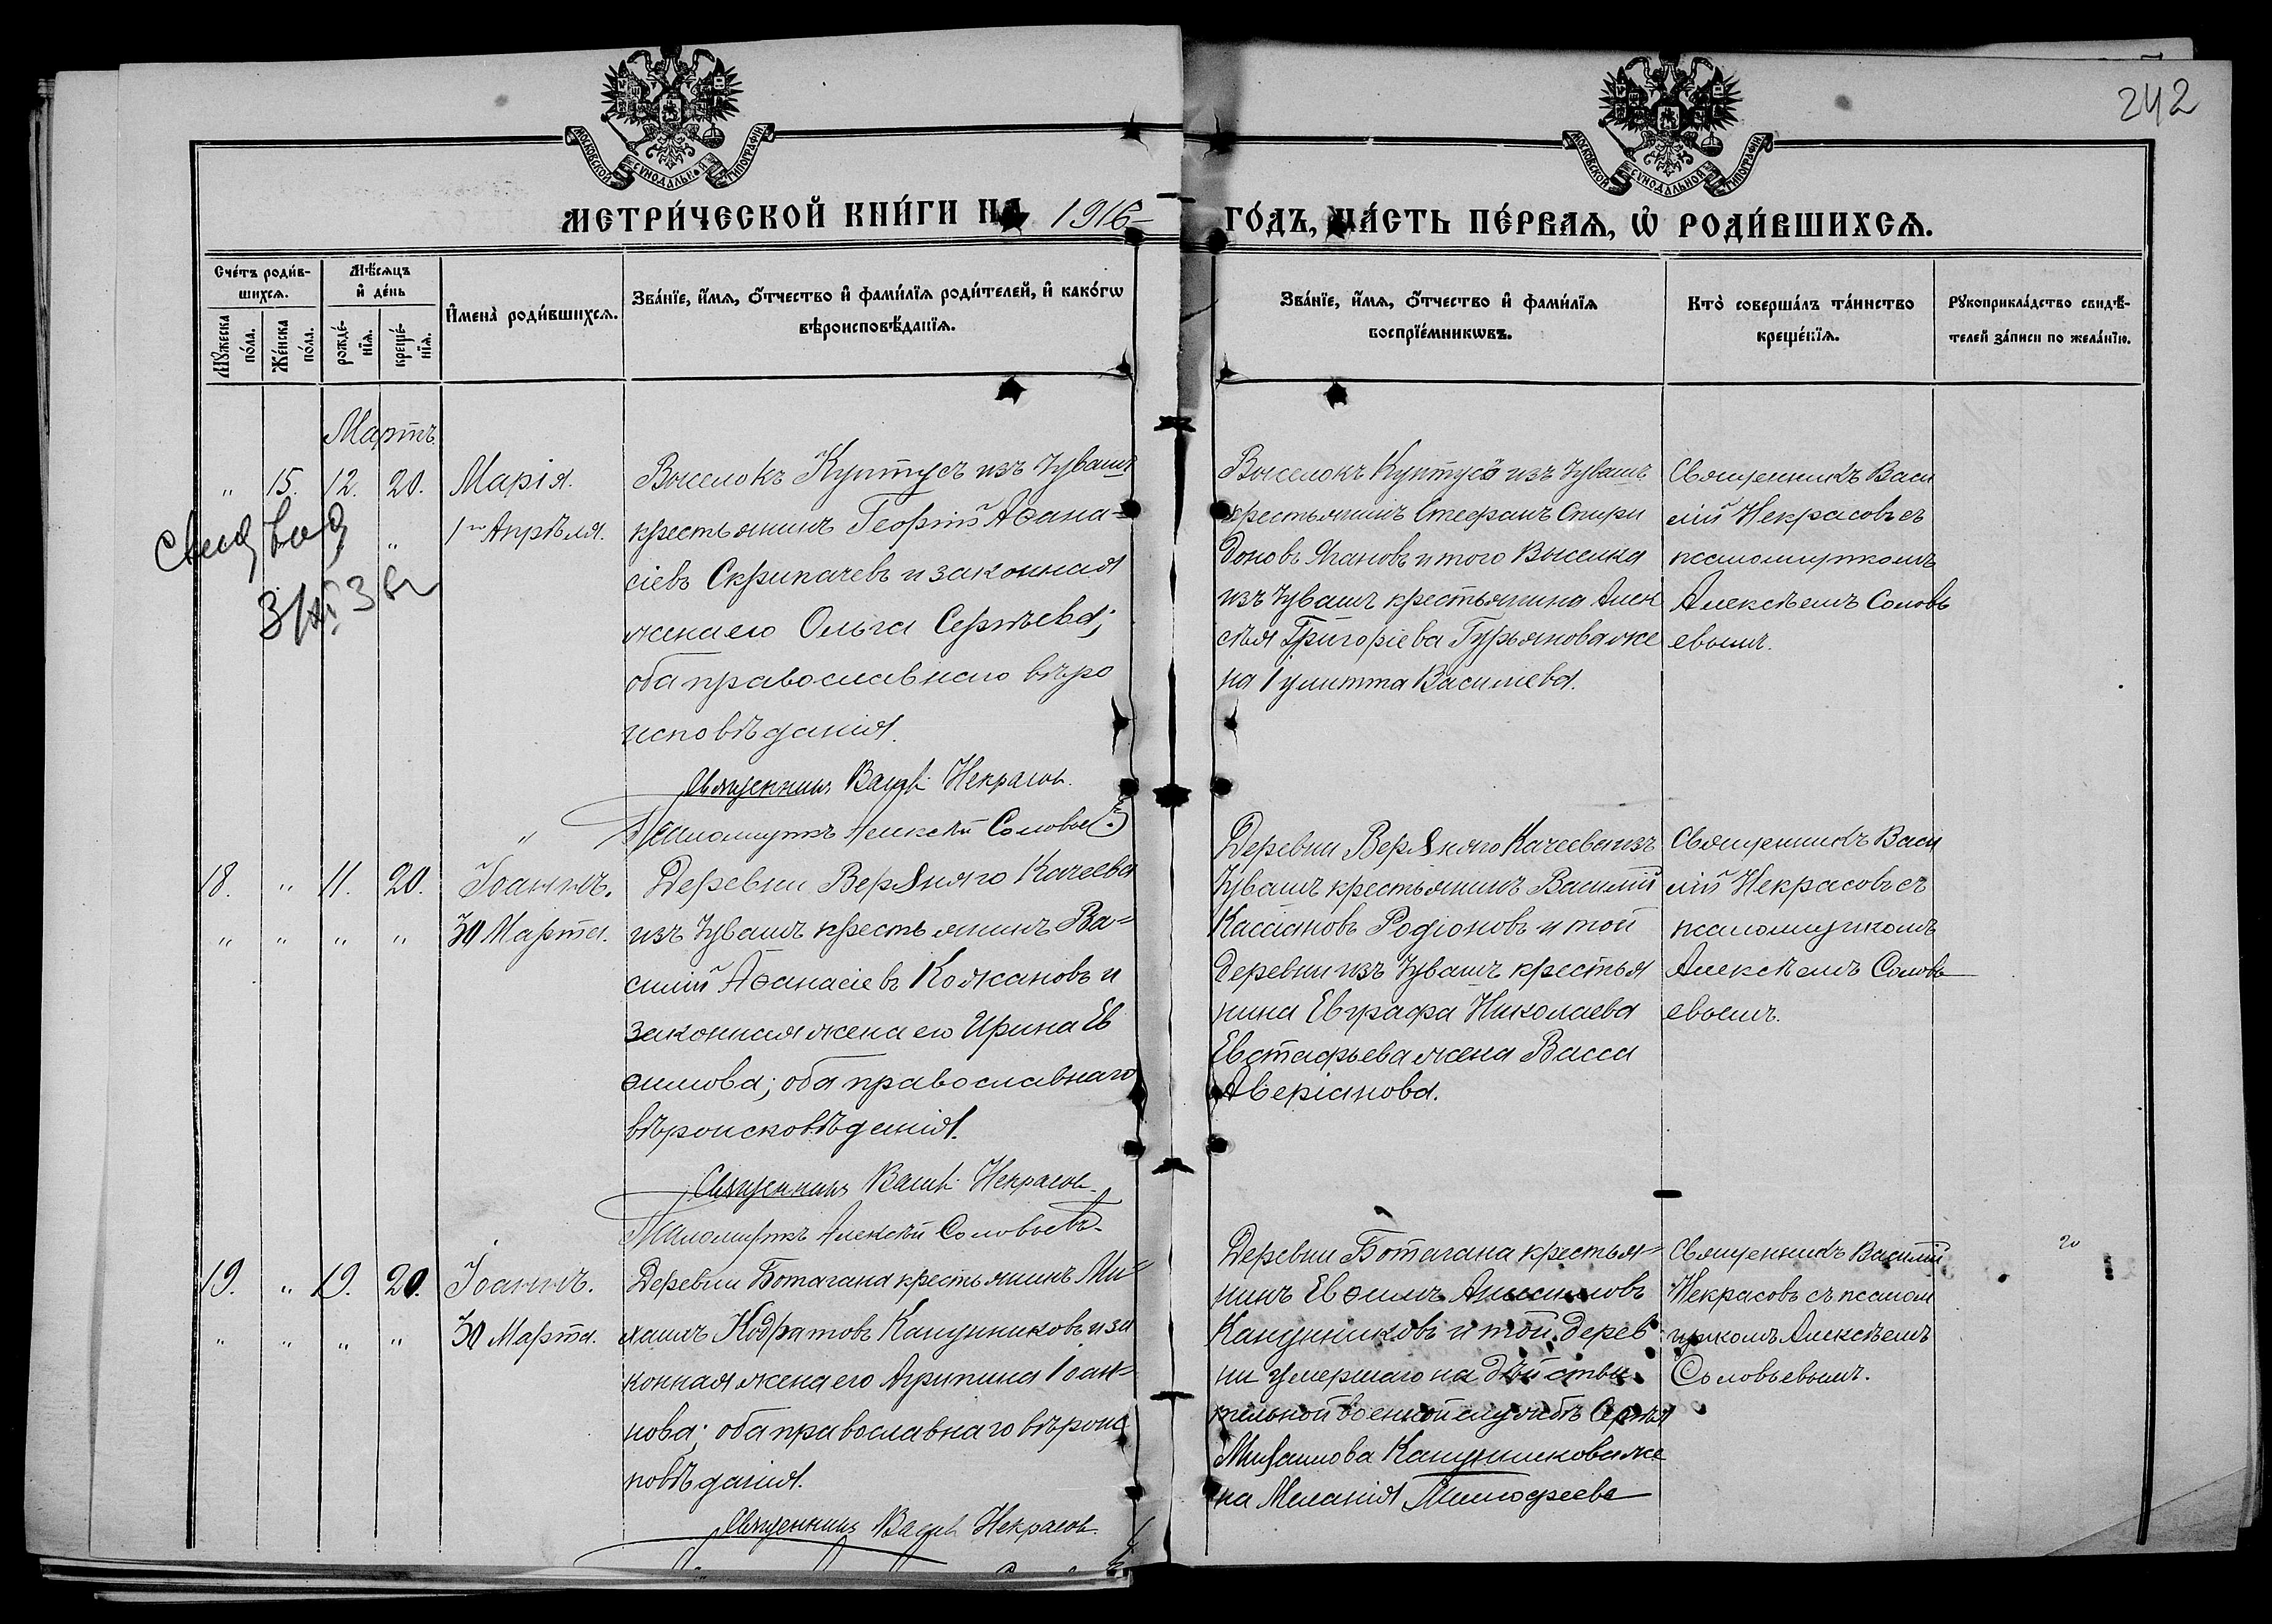 242
МОСКОВСКОЙ СѴНОДАЛЬНОЙ ТИПОГРАФІИ
МОСКОВСКОЙ СѴНОДАЛЬНОЙ ТИПОГРАФІИ
МЕТРИ́ЧЕСКОЙ КНИ́ГИ НА 1916 ГО́ДЪ, ЧА́СТЬ ПЕ́РВАЯ, Ѡ РОДИ́ВШИХСЯ.
Сче́тъ роди́в-
шихся.
Мѣ́сяцъ
и де́нь
Мꙋ́жеска
по́ла.
Же́нска
по́ла.
рожде́-
нїя.
креще́-
нїя.
Имена̀ роди́вшихся.
Зва́нїе, и́мя, о́тчество и фами́лїя роди́телей, и како́гѡ
вѣроисповѣ́данїя.
Зва́нїе, и́мя, о́тчество и фами́лїя
воспрїе́мникѡвъ.
Кто̀ соверша́лъ та́инство
креще́нїя.
Рꙋкоприкла́дство свидѣ́-
телей за́писи по жела́нїю.
Мартъ.
„ 15. 12. 20.
Марія.
1го Апрѣля.
Выселокъ Куптусъ изъ Чувашъ
крестьянинъ Георгій Аѳана=
сіевъ Скрипачевъ и законная
жена его Ольга Сергѣева;
оба православнаго вѣро
исповѣданія.
Священникъ Васил. Некрасовъ.
Псаломщикъ Алексѣй Соловьев
Выселокъ Куптусъ изъ Чувашъ
крестьянинъ Стефанъ Спири
доновъ Ягановъ и того Выселка
изъ Чувашъ крестьянина Алек
сѣя Григоріева Гурьянова же
на Іулитта Васильева.
Священникъ Васи
лій Некрасовъ съ
псаломщикомъ
Алексѣемъ Соловь
евымъ.
18. „ 11. 20.
„ „ „ „
Іоаннъ.
30 Марта.
Деревни Верхняго Качеева
изъ Чувашъ крестьянинъ Ва=
силій Аѳанасіевъ Кожановъ и
законная жена его Ирина Ев
ѳимова; оба православнаго
вѣроисповѣданія.
Священникъ Васил. Некрасовъ.
Псаломщикъ Алексѣй Соловьевъ.
Деревни Верхняго Качеева изъ
Чувашъ крестьянинъ Василій
Кассіановъ Родіоновъ и той
деревни изъ Чувашъ крестья
нина Евграфа Николаева
Евстафьева жена Васса
Аверіанова.
Священникъ Васи
лій Некрасовъ съ
псаломщикомъ
Алексѣемъ Соловь
евымъ.
19. „ 19. 20.
„ „ „ „
Іоаннъ.
30 Марта.
Деревни Ботагана крестьянинъ Ми=
хаилъ Кодратовъ Капунниковъ и за
конная жена его Агрипина Іоан=
нова; оба православнаго вѣроис
повѣданія.
Священникъ Васил. Некрасовъ.
Деревни Ботагана крестья=
нинъ Евѳимъ Анисимовъ
Капунниковъ и той дерев
ни умершаго на дѣйстви
тельной военной службѣ Сергѣя
Михаилова Капунникова же
на Меланія Тимофеева
Священникъ Василій
Некрасовъ съ псалом
щикомъ Алексѣемъ
Соловьевымъ.